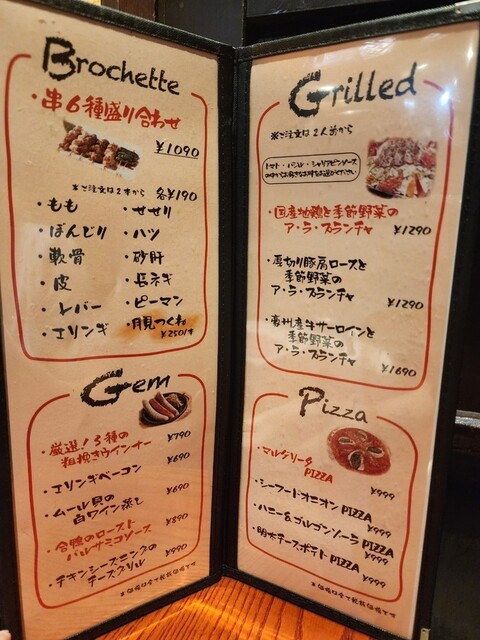 Brochette
・串6種盛り合わせ
¥1090
※ご注文は2本から 各¥190
・もも
・ぼんじり
・軟骨
・皮
・レバー
・エリンギ
・せせり
・ハツ
・砂肝
・長ネギ
・ピーマン
・月見つくね
¥250/本
Gem
・厳選!3種の
粗挽きウインナー
¥790
・エリンギベーコン
¥690
・ムール貝の
白ワイン蒸し
¥690
・合鴨のロースト
バルサミコソース
¥890
・チキンシーズニングの
チーズグリル
¥990
Grilled
※ご注文は2人前から
トマト・バジル・シャリアピンソース
の中からお好きなお味をお選びください
・国産地鶏と季節野菜の
ア・ラ・プランチャ
¥1290
・厚切り豚肩ロースと
季節野菜の
ア・ラ・プランチャ
¥1290
・豪州産牛サーロインと
季節野菜の
ア・ラ・プランチャ
¥1690
Pizza
・マルゲリータ
PIZZA
¥999
・シーフードオニオンPIZZA
¥999
・ハニー&ゴルゴンゾーラPIZZA
¥999
・明太チーズポテトPIZZA
¥999